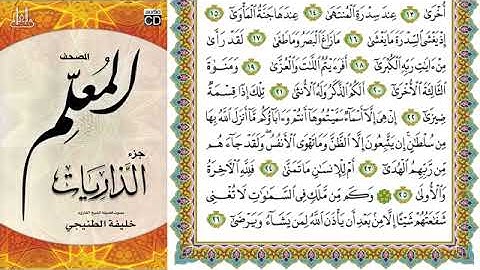 audio
CD
المصحف
المعلم
جزء
الذاريات
خليفة الطنيجي
أُخْرَىٰ ١٣ عِندَ سِدْرَةِ ٱلْمُنتَهَىٰ ١٤ عِندَهَا جَنَّةُ ٱلْمَأْوَىٰٓ ١٥
إِذْ يَغْشَى ٱلسِّدْرَةَ مَا يَغْشَىٰ ١٦ مَا زَاغَ ٱلْبَصَرُ وَمَا طَغَىٰ ١٧ لَقَدْ رَأَىٰ
مِنْ ءَايَٰتِ رَبِّهِ ٱلْكُبْرَىٰٓ ١٨ أَفَرَءَيْتُمُ ٱللَّٰتَ وَٱلْعُزَّىٰ ١٩ وَمَنَوٰةَ
ٱلثَّالِثَةَ ٱلْأُخْرَىٰٓ ٢٠ أَلَكُمُ ٱلذَّكَرُ وَلَهُ ٱلْأُنثَىٰ ٢١ تِلْكَ إِذًا قِسْمَةٌ
ضِيزَىٰٓ ٢٢ إِنْ هِىَ إِلَّآ أَسْمَآءٌ سَمَّيْتُمُوهَآ أَنتُمْ وَءَابَآؤُكُم مَّآ أَنزَلَ ٱللَّهُ بِهَا
مِن سُلْطَٰنٍ إِن يَتَّبِعُونَ إِلَّا ٱلظَّنَّ وَمَا تَهْوَى ٱلْأَنفُسُ وَلَقَدْ جَآءَهُم
مِّن رَّبِّهِمُ ٱلْهُدَىٰٓ ٢٣ أَمْ لِلْإِنسَٰنِ مَا تَمَنَّىٰ ٢٤ فَلِلَّهِ ٱلْءَاخِرَةُ
وَٱلْأُولَىٰ ٢٥ وَكَم مِّن مَّلَكٍ فِى ٱلسَّمَٰوَٰتِ لَا تُغْنِى
شَفَٰعَتُهُمْ شَيْـًٔا إِلَّا مِنۢ بَعْدِ أَن يَأْذَنَ ٱللَّهُ لِمَن يَشَآءُ وَيَرْضَىٰٓ ٢٦